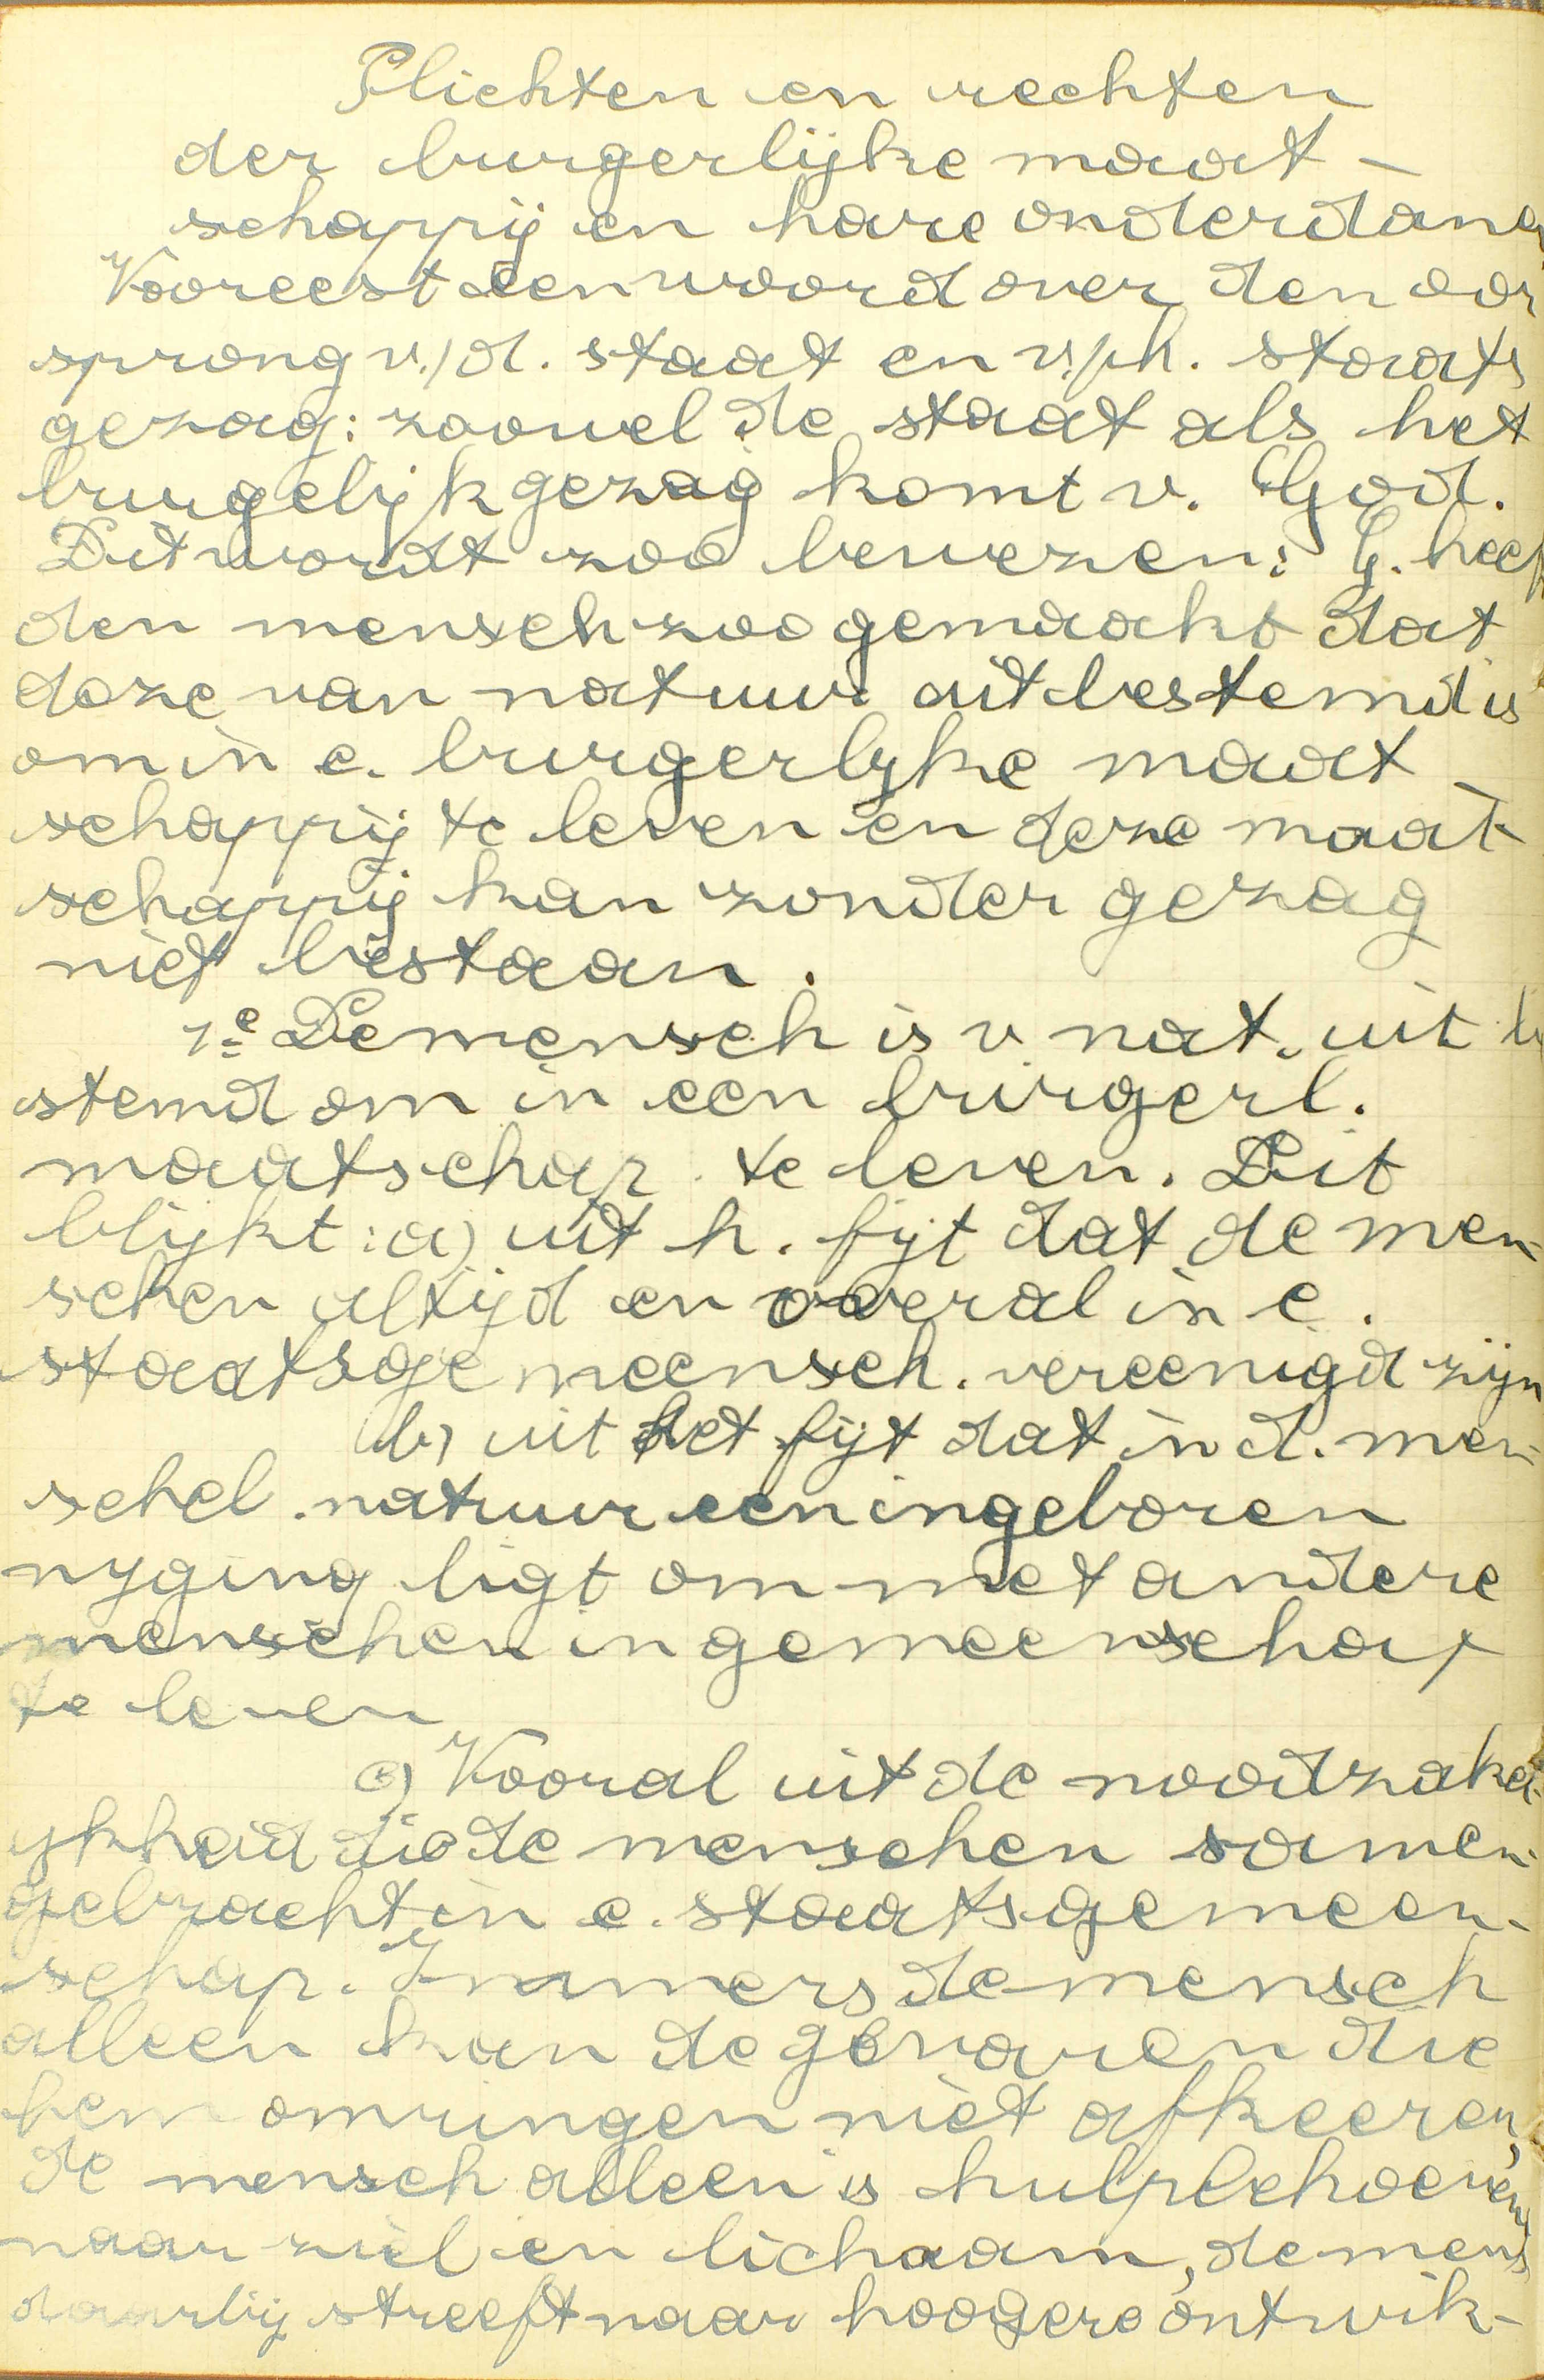 Plichten en rechten
der burgerlijke maat-
schappij en hare onderdanen
Vooreest een woord over den oor
sprong v./d. staat en v./h. staats
gezag: zoowel de staat als het
burgelijk gezag komt v. God.
Dit wordt zoo bewezen: G. heeft
den mensch zoo gemaakt dat
deze van natuur uit bestemd is
om in e. burgerlyke maat
schappij te leven en deze maat-
schappij kan zonder gezag
niet bestaan.
1e De mensch is v. nat. uit be
stemd om in een burgerl.
maatschap. te leven. Dit
blijkt: a) uit h. fijt dat de men-
schen altijd en overal in e.
staatsgemeensch. vereenigd zijn
b) uit het fijt dat in d. men-
schel. natuur een ingeboren
nyging ligt om met andere
menschen in gemeenschap
te leven
c) Vooral uit de noodzakel-
ykheid die de menschen samen-
gebracht in e. staatsgemeen-
schap. Immers de mensch
alleen kan de gevaren die
hem omringen niet afkeeren,
de mensch alleen is hulpbehoevend
naar ziel en lichaam, de mens
daarbij streeft naar hoogere ontwik-